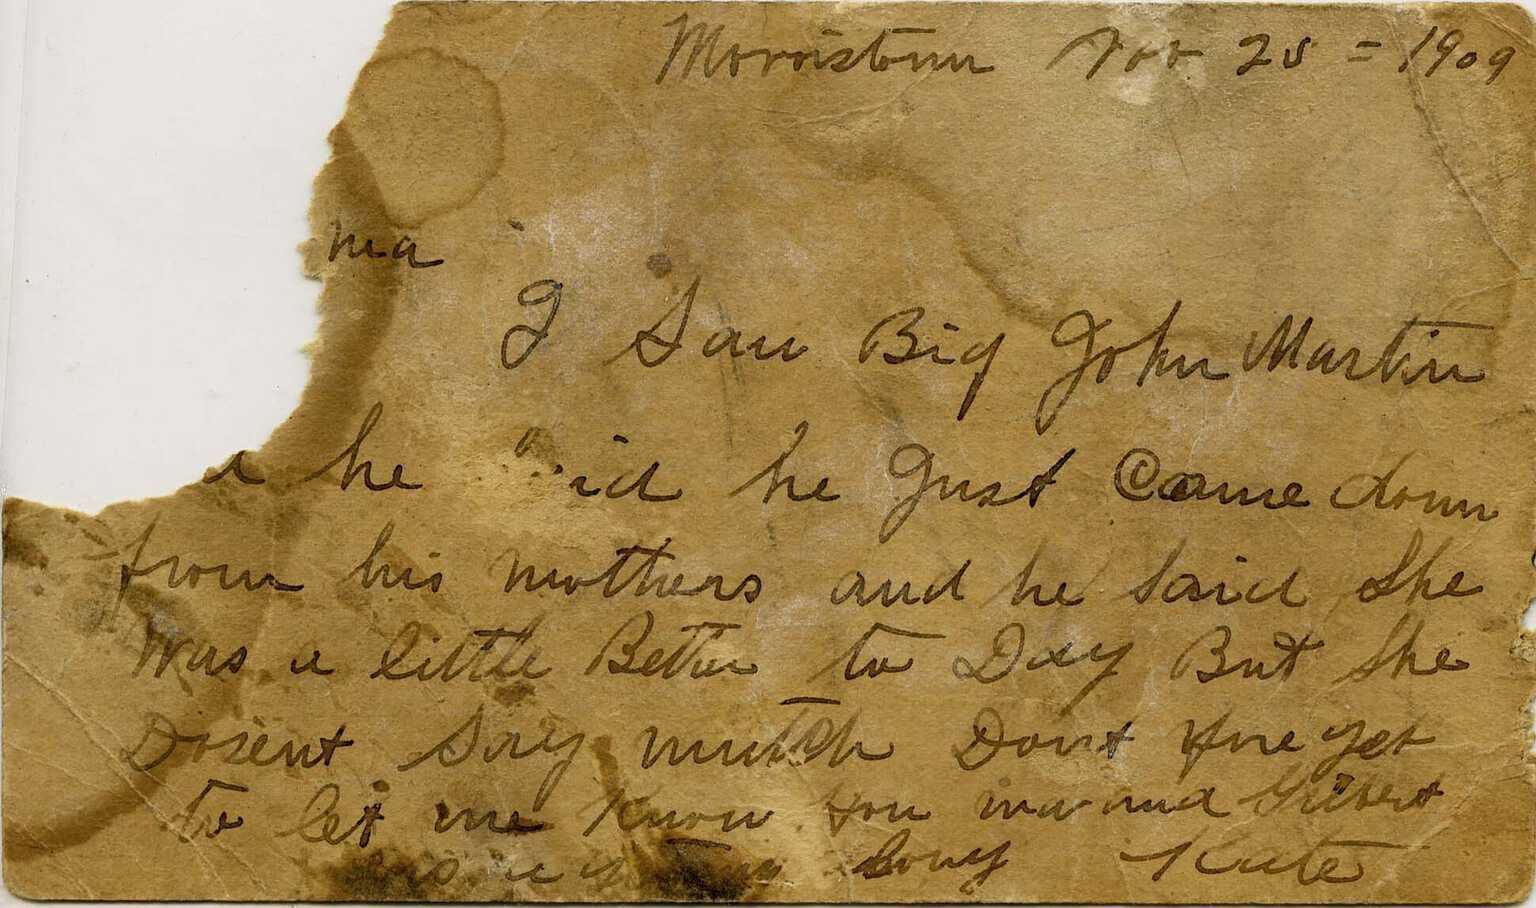 Morristown Nov 25 = 1909
ma
I Saw Big John Martin
he he Just Came down
from his mothers and he said She
Was a little Better to Day But She
Dosent Say mutch Dont forget
to let me Know how ma and Gilbert
is Long Kate